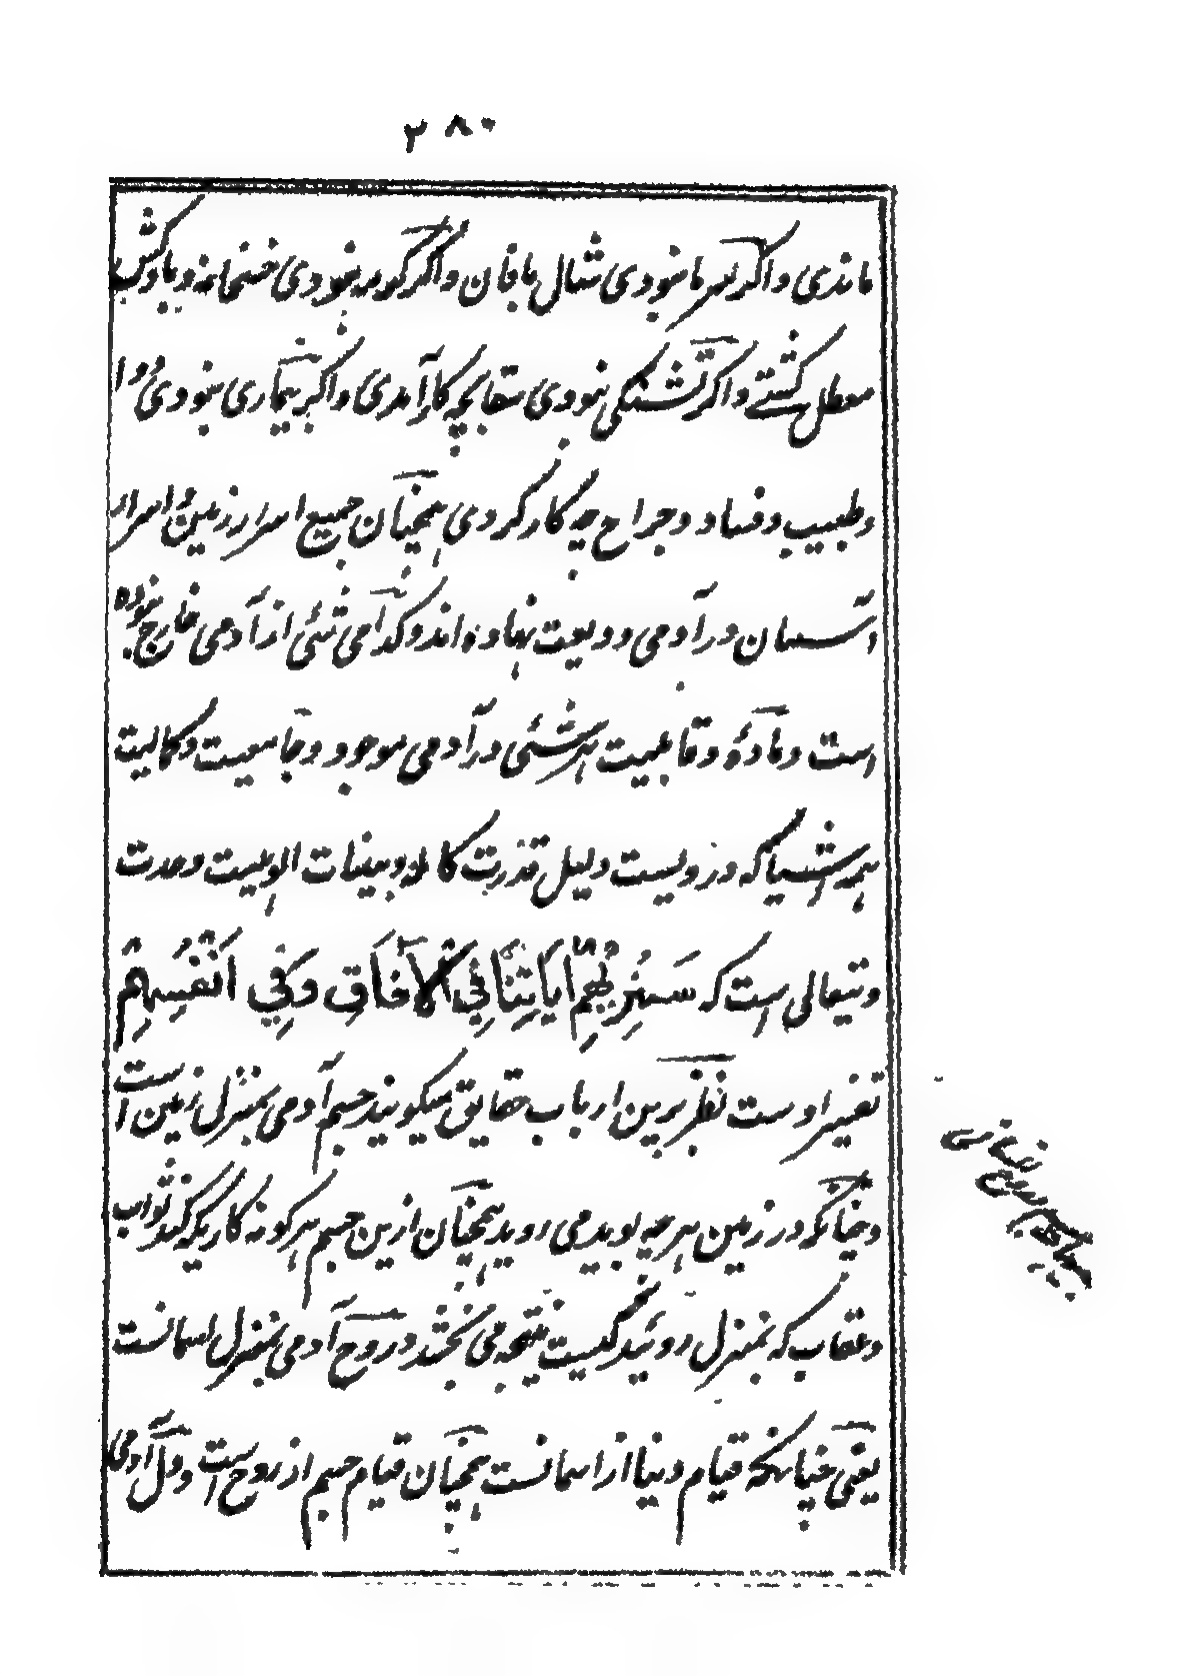 ۲۸۰
ماندی و اگر سرما نبودی شال بافان و اگر گرسنه نبودی و باورکش
معطل گشتے و اگر تشنگی نبودی سقا بچه کار آمدی و اگر بیماری نبودی دوا
و طبیب و فساد و جراح چه کار کردی همچنان جمیع اسرار زمین و اسرار
آسمان در آدمی ودیعت نهاده اند و کدامی شئی از آدمی خارج نبوده
است و مادهٔ و قابلیت هر شئی در آدمی موجود و جامعیت و کمالیت
همه اشیا که در ویست دلیل قدرت کامله و بینات الوهیت وحدت
و تعالی است که سَنُرِيهِمْ اٰيَاتِنَا فِي الْاٰفَاقِ وَفِي اَنْفُسِهِمْ
تفسیر اوست نظر برین ارباب حقایق میگویند جسم آدمی بمنزل زمین است
و چنانکه در زمین هر چه بویدمی روید همچنان ازین جسم هر گونه کاریکه کند ثواب
و عقاب که بمنزل روئیدگیست نتیجه می بخشد و روح آدمی بمنزل اسمانست
یعنی چنانکه قیام دنیا از اسمانست همچنان قیام جسم از روح است و دل آدمی